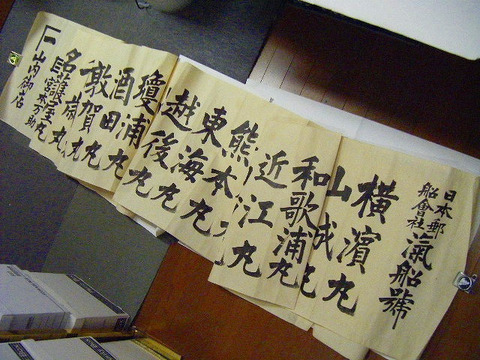 日本郵
船會社
滊船號
横濱丸
山城丸
和歌浦丸
近江丸
熊本丸
東海丸
越後丸
瓊浦丸
酒田丸
敦賀丸
名護屋丸
山内御店